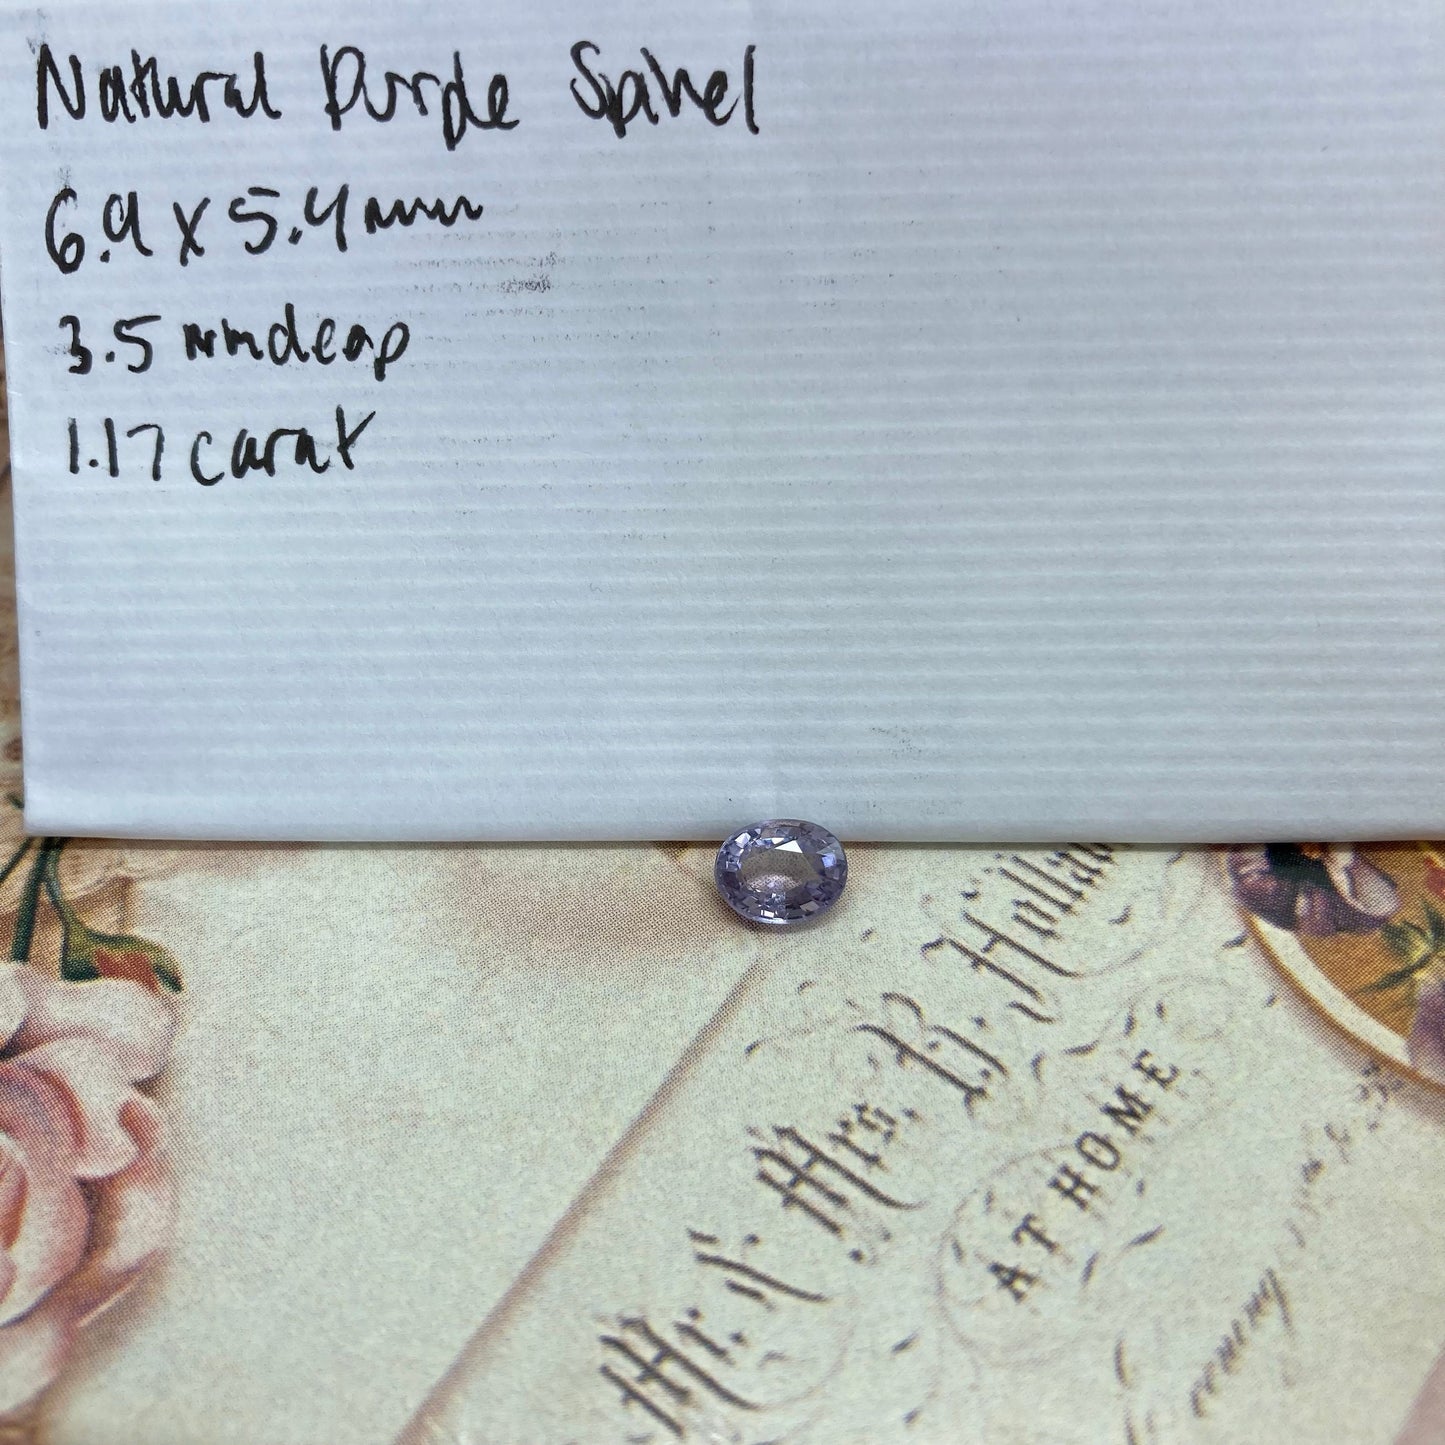 Natural Purple Spinel
6.9 x 5.4 mm
3.5 mm deep
1.17 carat
Mr. & Mrs. B. Holland
AT HOME
evening